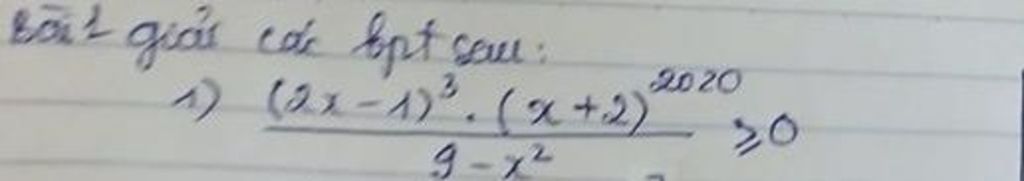 Bài 1 giải các bpt sau:
1) \frac{(2x-1)^3 . (x+2)^{2020}}{9-x^2} ≥ 0